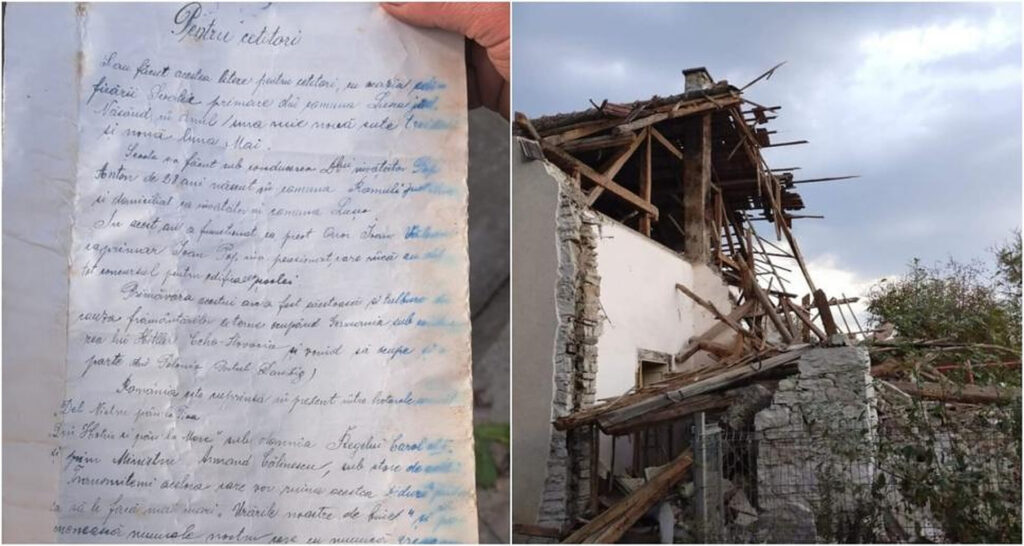 Pentru cetitori
S'au făcut acestea litere pentru cetitori, cu ocazia
firării Școalei primare din comuna Luna jud.
Năsăud, în anul una mie nouă sute
și nouă luna Mai.
Școala s'a făcut sub conducerea Dlui învățător Pop
Anton de 28 ani născut în comuna Romuli
și domiciliat ca învățător în comuna Luna
În acest an a funcționat ca preot Oros Ioan
ca primar Ioan Pop
tot concursul pentru edificarea școalei
Primăvara acestui an a fost
cauza frământărilor externe ocupând Germania sub
rea lui Hitler Ceho-Slovacia și voind să ocupe și o
parte din Polonia (Portul Danzig)
România este cuprinsă în prezent între hotarele
"Del Nistru pân la Tisa
Din Hotin și pân la Mare" sub domnia Regelui Carol
și prim Ministru Armand Călinescu, sub stare de
Transmitem acelora care vor ruina acestea
să le facă mai mari, "Urările noastre de bine", și
menească numele nostru care cu muncă